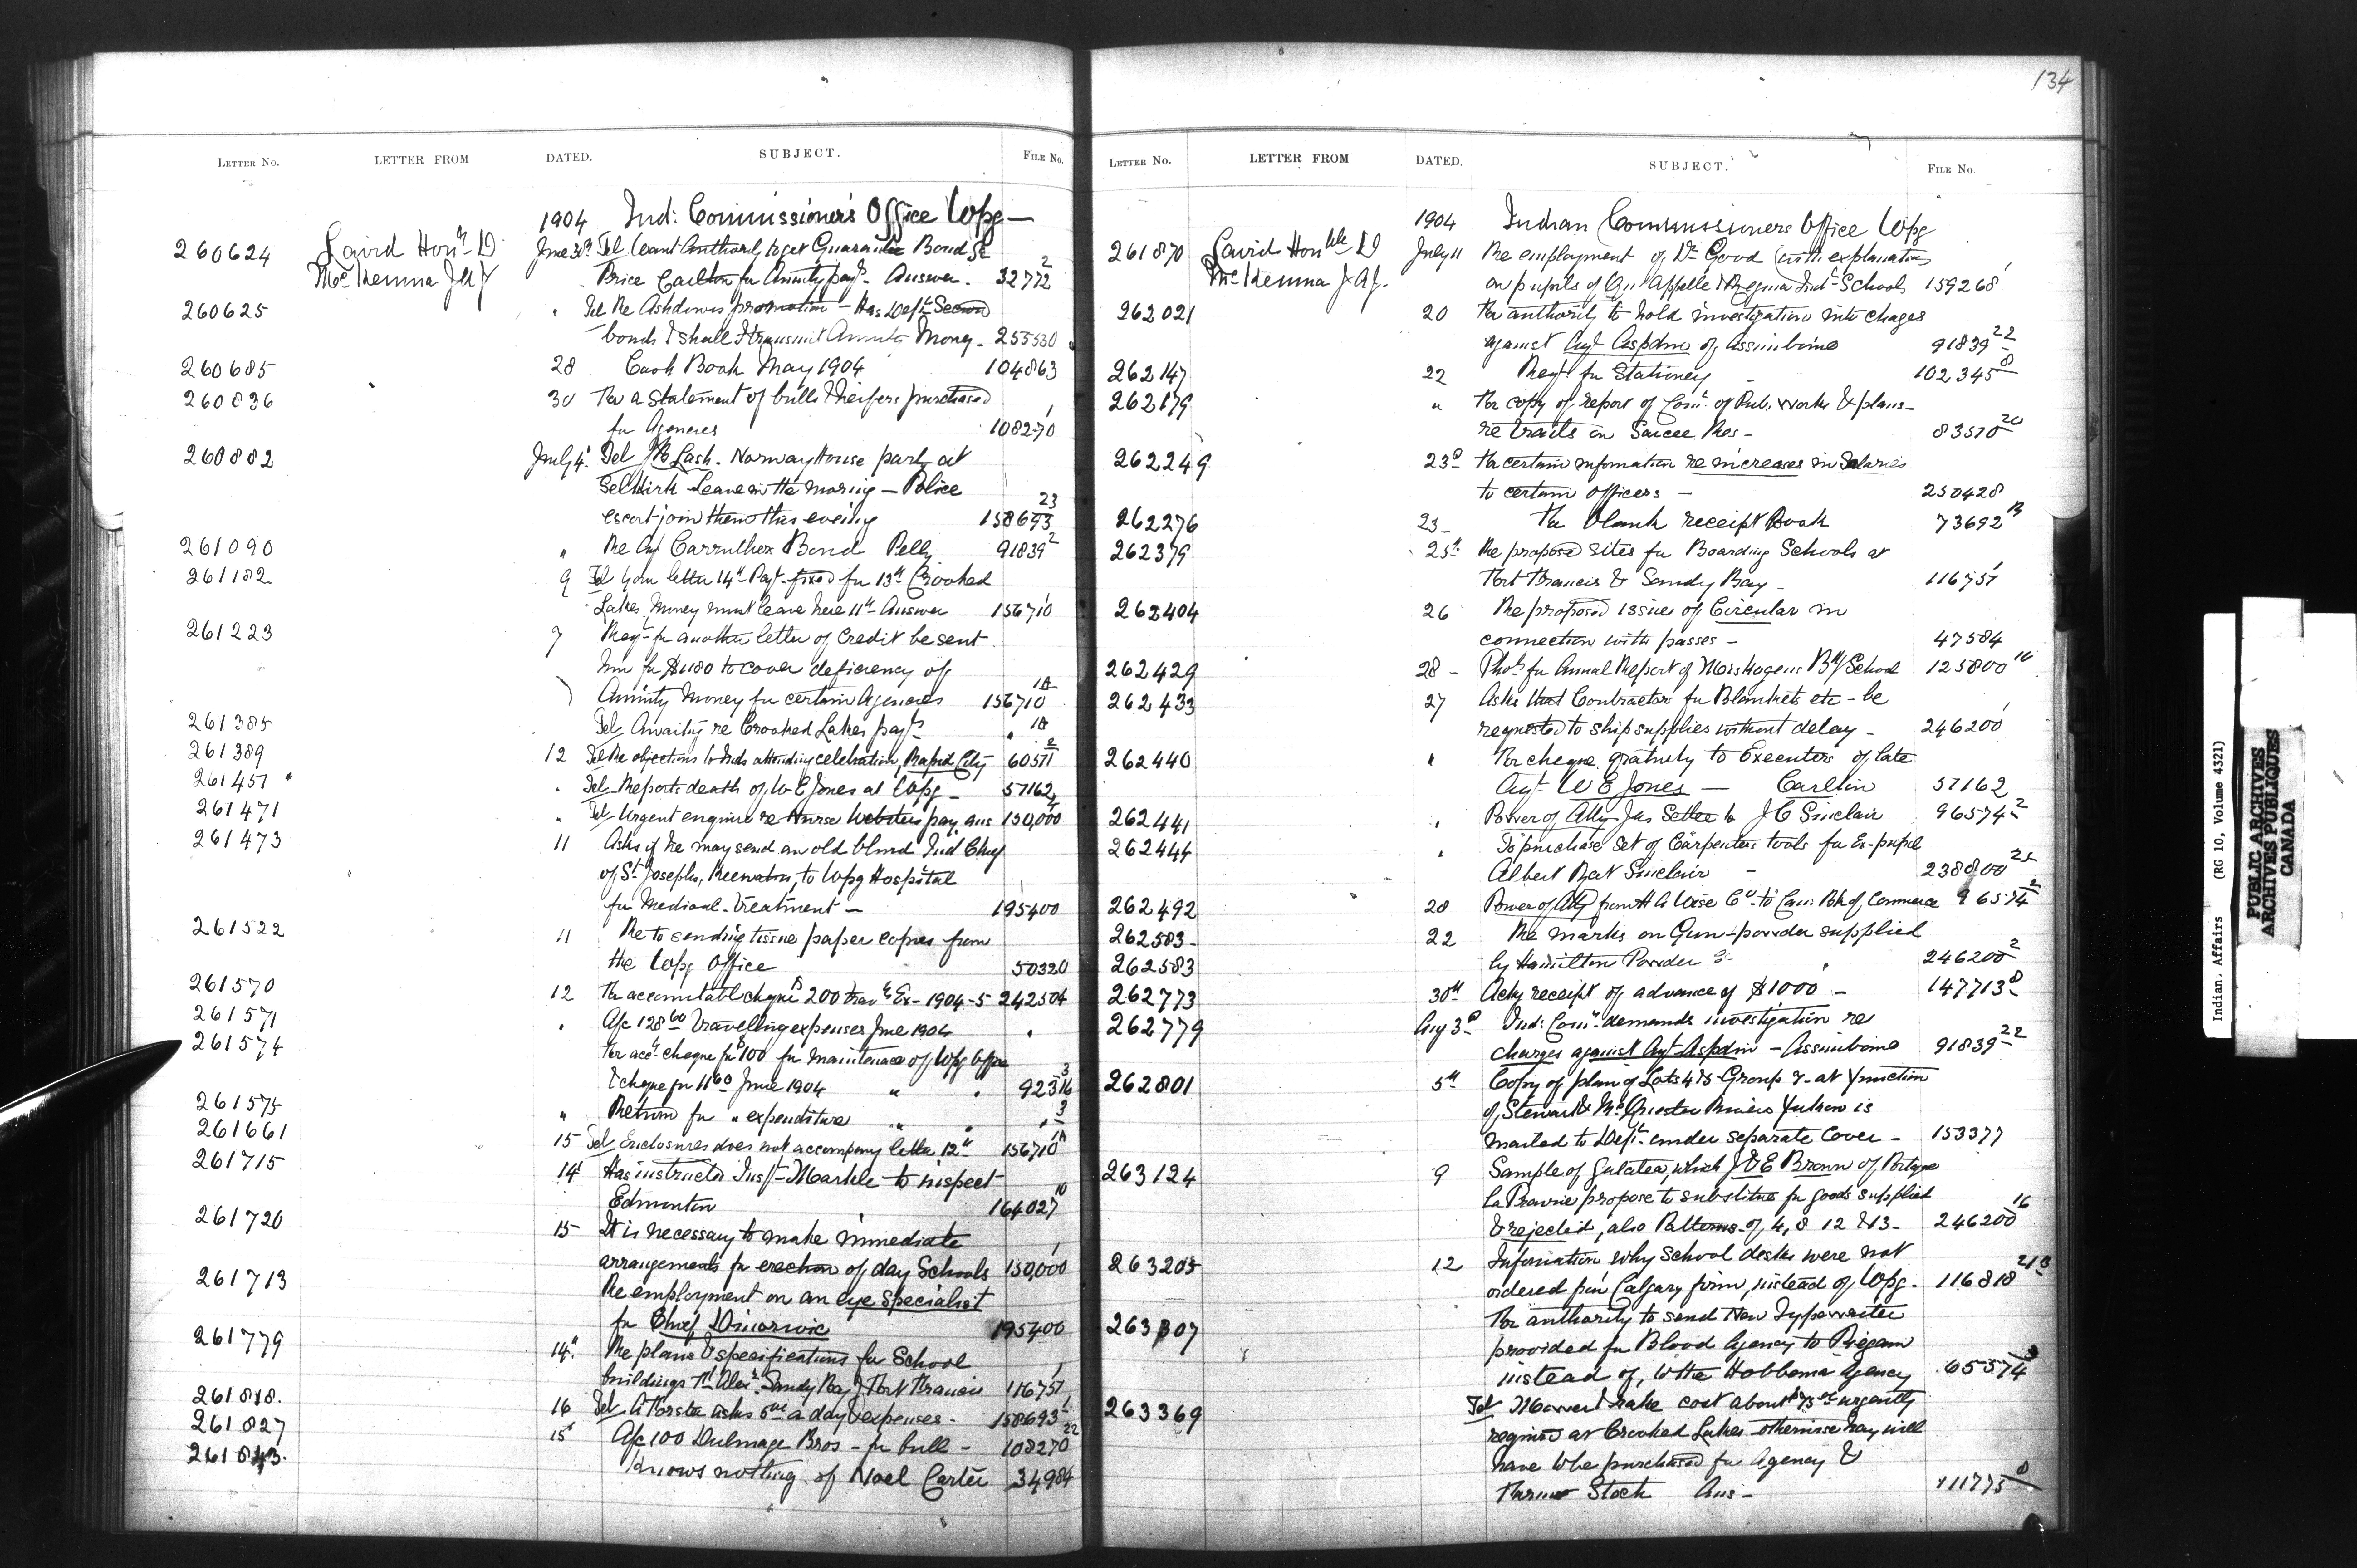 134
LETTER No. LETTER FROM DATED. SUBJECT. FILE No.
1904 Ind: Commissioner's Office Wpg —
260624 Laird Hon. D June 30 Tel Want Authority to get Guarantee Bond
McKenna J A J Price Carlton for Annuity payt - Answer - 32772 2
260625 " Tel Re Ashdowns promotion - Has Dept Second
bonds & shall I transmit Annuity Money - 255530
260685 28 Cash Book May 1904 104863
260836 30 For a Statement of bulls & heifers purchased
for Agencies 108270 1
260882 July 4 Tel Lash - Norway House party at
Selkirk Leave in the morning — Police
escort join them this evening 158693 23
261090 " Re Agt Carruthers Bond Pelly 91839 2
261182 9 Tel Your letter 14th Payt fixed for 13th Crooked
Lakes, Money must leave here 11th Answer 156710 1
261223 7 Reqt for another letter of Credit be sent
him for $1180 to cover deficiency of
Annuity Money for certain Agencies 156710 1A
261385 Tel Awaiting re Crooked Lakes payt " 1A
261389 12 Tel Re objections to Inds attending celebration, Rapid City 60511 2
261457 " Tel Reports death of W E Jones at Wpg — 57162
261471 " Tel Urgent enquire re Nurse Websters pay, ans 150,000
261473 11 Asks if he may send an old blind Ind Chief
of St Josephs, Keewatin, to Wpg Hospital
for Medical Treatment — 195400
261522 11 Re to sending tissue paper copies from
the Wpg Office 50320
261570 12 For accountable cheque $200 trav Ex - 1904-5 242504
261571 " A/c 128 60 Travelling expenses June 1904 "
261574 For acct cheque for $100 for maintenance of Wpg Office
& cheque for 11 60 June 1904 " " 92316 3
261575 " Return for " expenditure " " " 3
261661 15 Tel Enclosures does not accompany letter 12th 156710 1A
261715 14 Has instructed Inspt Markle to inspect
Edmonton 164027 10
261720 15 It is necessary to make immediate
arrangements for erection of day Schools 150,000 1
261713 Re employment on an eye specialist
for Chief 195400
261779 14 Re plans & specifications for School
buildings Ft Alexr Sandy Bay & Fort Francis 116751 1
261818. 16 Tel A Forster asks 5 00 a day & expenses - 158693
261827 15 A/c 100 Dulmage Bros - for bull - 108270 22
261843. Knows nothing of Noel Carter 34984
LETTER No. LETTER FROM DATED. SUBJECT. FILE No.
1904 Indian Commissioners Office Wpg
261870 Laird Honble D July 11 Re employment of Dr Good (with explanation
McKenna J A J. on pupils of Qu'Appelle & Regina Indl Schools 159268 1
262021 20 For authority to hold investigation into charges
against Agt Aspdin of Assiniboine 91839 22
262147 22 Reqt for Stationery - 102345 8
262179 " For copy of report of Comr of Pub. Works & plans -
re trails on Sarcee Res - 83570 20
262249 23d For certain information re increases in Salaries
to certain Officers — 250428
262276 23 - For blank receipt Book 73692 13
262379 25th Re proposed sites for Boarding Schools at
Fort Francis & Sandy Bay - 116751 1
262404 26 Re proposed issue of Circular in
connection with passes - 47584
262429 28 - Photo for Annual Report of Bdg School 125800 16
262433 27 Asks that Contractors for Blankets etc - be
requested to ship supplies without delay - 246200 1
262440 " For cheque gratuity to Executors of late
Agt W E Jones — Carlton 57162
262441 " Power of Atty Jas Settee to J C Sinclair 96574 2
262444 " To purchase Set of Carpenters tools for Ex-pupil
Albert Bat Sinclair - 238800 25
262492 28 Power of Atty from H A Wise Co to Can: Bk of Commerce 96574 2
262583 - 22 Re marks on Gun-powder supplied
262583 by Hamilton Powder Co " 246200 2
262773 30th Ackg receipt of advance of $1000 — 147713 8
262779 Aug 3d Ind: Comr demands investigation re
charges against Agt Aspdin - Assiniboine 91839 22
262801 5th Copy of plan of Lots 4 & 5 Group 2 - at Junction
of Stewart & McQuesten Rivers Yukon is
mailed to Dept under separate Cover - 153377
263124 9 Sample of Galatea, which J & E Brown of Portage
La Prairie propose to substitute for goods supplied
& rejected, also Patterns of 4, 8 12 & 13 - 246200 16
263205 12 Information why School desks were not
ordered from Calgary firm, instead of Wpg - 116818
263307 For authority to send New Typewriter
provided for Blood Agency to Piegan
instead of, to the Hobbema Agency 65574
263369 Tel Mower & rake cost about $75 00 urgently
required at Crooked Lakes otherwise hay will
have to be purchased for Agency &
Farmer Stock Ans - 111775 8
Indian Affairs (RG 10, Volume 4321)
PUBLIC ARCHIVES
ARCHIVES PUBLIQUES
CANADA